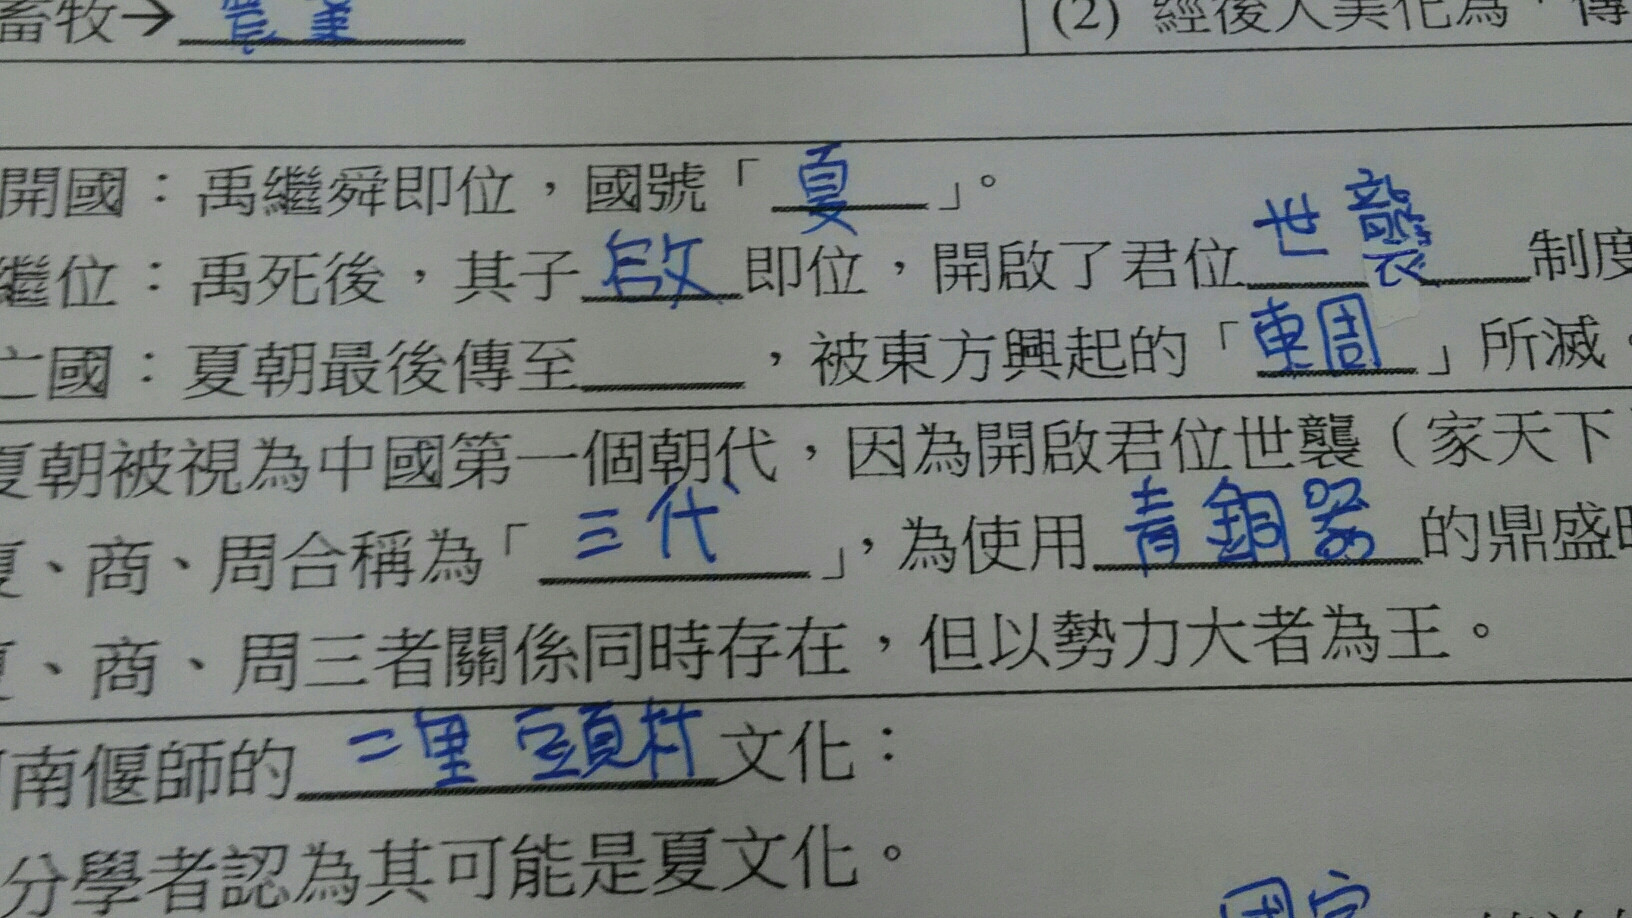 畜牧→
(2) 經後人美化為「傳
開國：禹繼舜即位，國號「夏」。
繼位：禹死後，其子啟即位，開啟了君位世襲制度
亡國：夏朝最後傳至____，被東方興起的「東周」所滅。
夏朝被視為中國第一個朝代，因為開啟君位世襲（家天下
夏、商、周合稱為「三代」，為使用青銅器的鼎盛時
夏、商、周三者關係同時存在，但以勢力大者為王。
南偃師的二里頭村文化：
分學者認為其可能是夏文化。